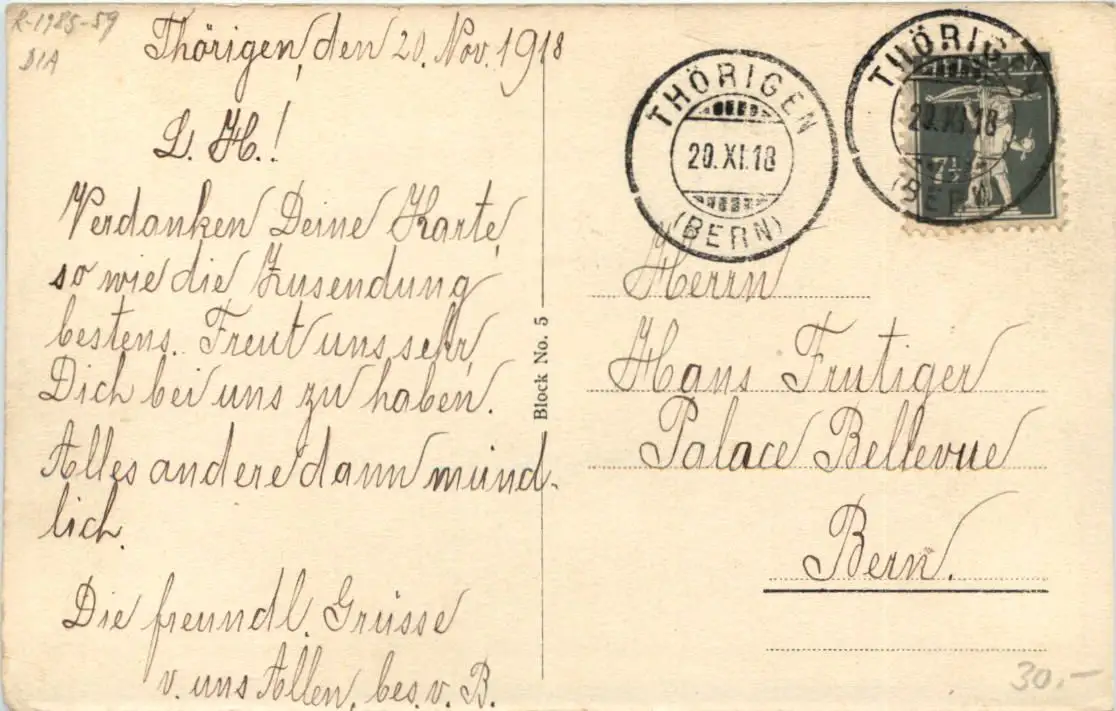 R-1985-59
DIA
Thörigen, den 20. Nov. 1918
L. H.!
Verdanken Deine Karte,
so wie die Zusendung
bestens. Freut uns sehr,
Dich bei uns zu haben.
Alles andere dann münd-
lich.
Die freundl. Grüsse
v. uns Allen, bes. v. B.
Block No. 5
THÖRIGEN
20.XI.18
(BERN)
THÖRIGEN
20.XI.18
(BERN)
7½
Herrn
Hans Frutiger
Palace Bellevue
Bern.
30.-